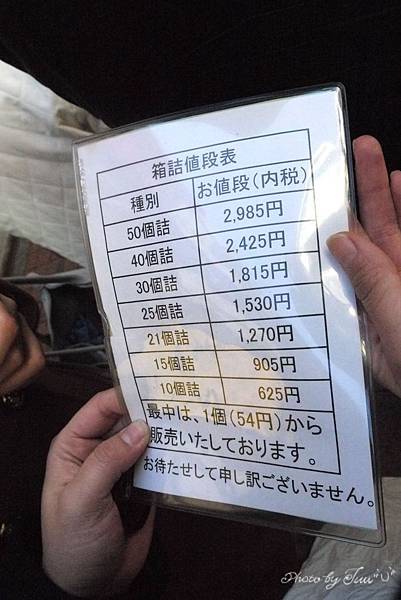 箱詰値段表
種別 お値段(内税)
50個詰 2,985円
40個詰 2,425円
30個詰 1,815円
25個詰 1,530円
21個詰 1,270円
15個詰 905円
10個詰 625円
最中は、1個(54円)から
販売いたしております。
お待たせして申し訳ございません。
Photo by